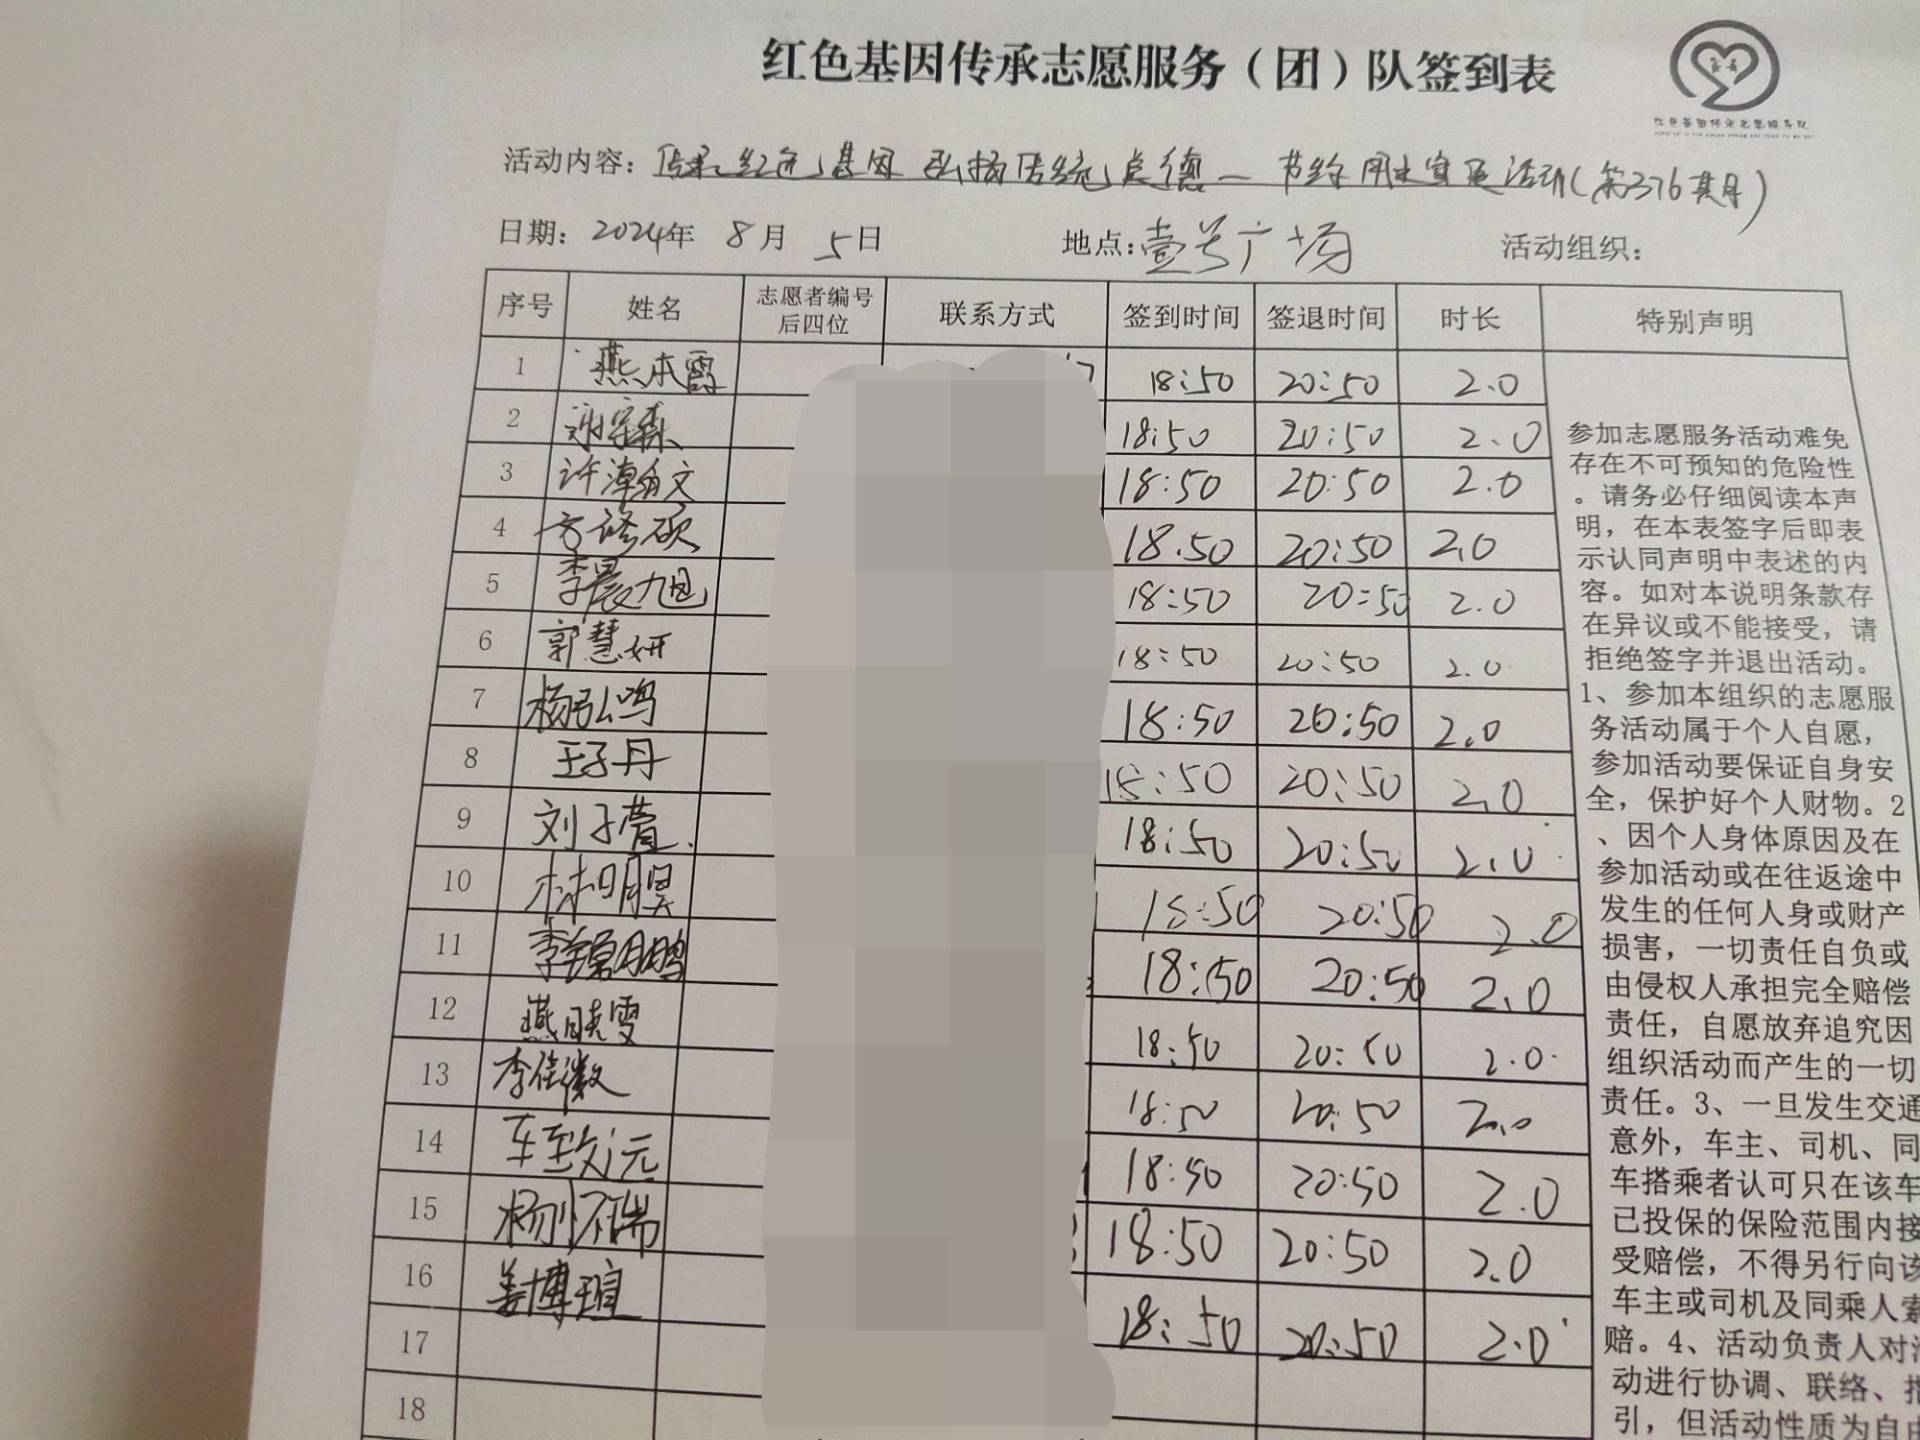 红色基因传承志愿服务（团）队签到表
红色基因传承志愿服务队
活动内容：传承红色基因 弘扬传统美德—节约用水宣传活动（第376期）
日期：2024年 8月 5日 地点：壹号广场 活动组织：
序号 姓名 志愿者编号后四位 联系方式 签到时间 签退时间 时长 特别声明
1 燕本霞 18:50 20:50 2.0
2 18:50 20:50 2.0
3 许瀚文 18:50 20:50 2.0
4 方修硕 18.50 20:50 2.0
5 李晨旭 18:50 20:50 2.0
6 郭慧妍 18:50 20:50 2.0
7 杨弘鸣 18:50 20:50 2.0
8 王子丹 18:50 20:50 2.0
9 刘子萱. 18:50 20:50 2.0
10 林明昊 18:50 20:50 2.0
11 李锦鹏 18:50 20:50 2.0
12 燕晓雯 18:50 20:50 2.0
13 李佳徽 18:50 20:50 2.0
14 车致远 18:50 20:50 2.0
15 18:50 20:50 2.0
16 姜博瑄 18:50 20:50 2.0
17
18
参加志愿服务活动难免
存在不可预知的危险性
。请务必仔细阅读本声
明，在本表签字后即表
示认同声明中表述的内
容。如对本说明条款存
在异议或不能接受，请
拒绝签字并退出活动。
1、参加本组织的志愿服
务活动属于个人自愿，
参加活动要保证自身安
全，保护好个人财物。2
、因个人身体原因及在
参加活动或在往返途中
发生的任何人身或财产
损害，一切责任自负或
由侵权人承担完全赔偿
责任，自愿放弃追究因
组织活动而产生的一切
责任。3、一旦发生交通
意外，车主、司机、同
车搭乘者认可只在该车
已投保的保险范围内接
受赔偿，不得另行向该
车主或司机及同乘人索
赔。4、活动负责人对活
动进行协调、联络、指
引，但活动性质为自由